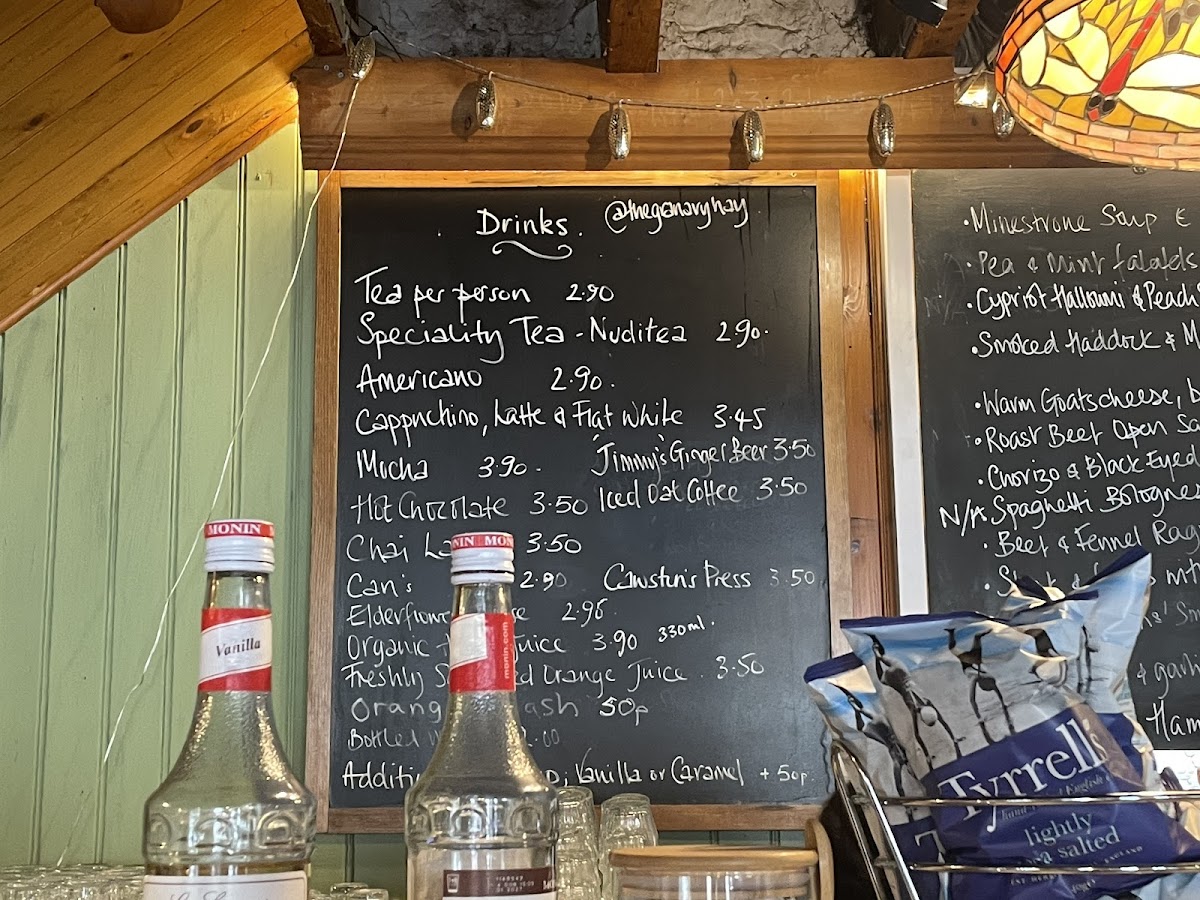 Drinks. @thegranaryhay
Tea per person 2.90
Speciality Tea - Nuditea 2.90.
Americano 2.90.
Cappuchino, Latte & Flat White 3.45
Mocha 3.90. 'Jimmy's' Ginger Beer 3.50
Hot Chocolate 3.50 Iced Oat Coffee 3.50
Chai 3.50
Can's 2.90 Cawston's Press 3.50
2.95.
Organic Juice 3.90 330ml.
Freshly Orange Juice. 3.50
50p
Bottled
Vanilla or Caramel + 50p.
• Minestrone Soup
• Pea & Mint falafels
• Cypriot Halloumi & Peach
• Smoked Haddock &
• Warm Goatscheese,
• Roast Beef Open
• Chorizo & Black Eyed
N/A • Spaghetti
• Beef & Fennel
MONIN
Vanilla
MONIN
monin.com
Tyrrell's
lightly
sea salted